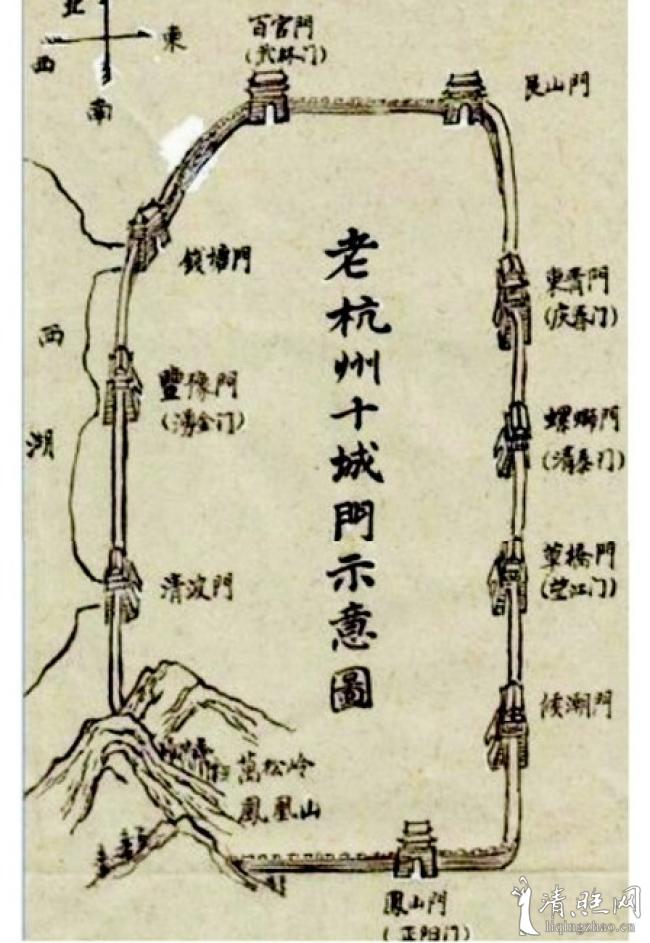 北
東
西
南
百官門
(武林门)
艮山門
錢塘門
東青門
(庆春门)
西湖
豐豫門
(湧金门)
螺螄門
(清泰门)
草橋門
(望江门)
清波門
候潮門
萬松岭
鳳凰山
鳳山門
(正阳门)
老杭州十城門示意圖
清旺网
liqingzhao.cn